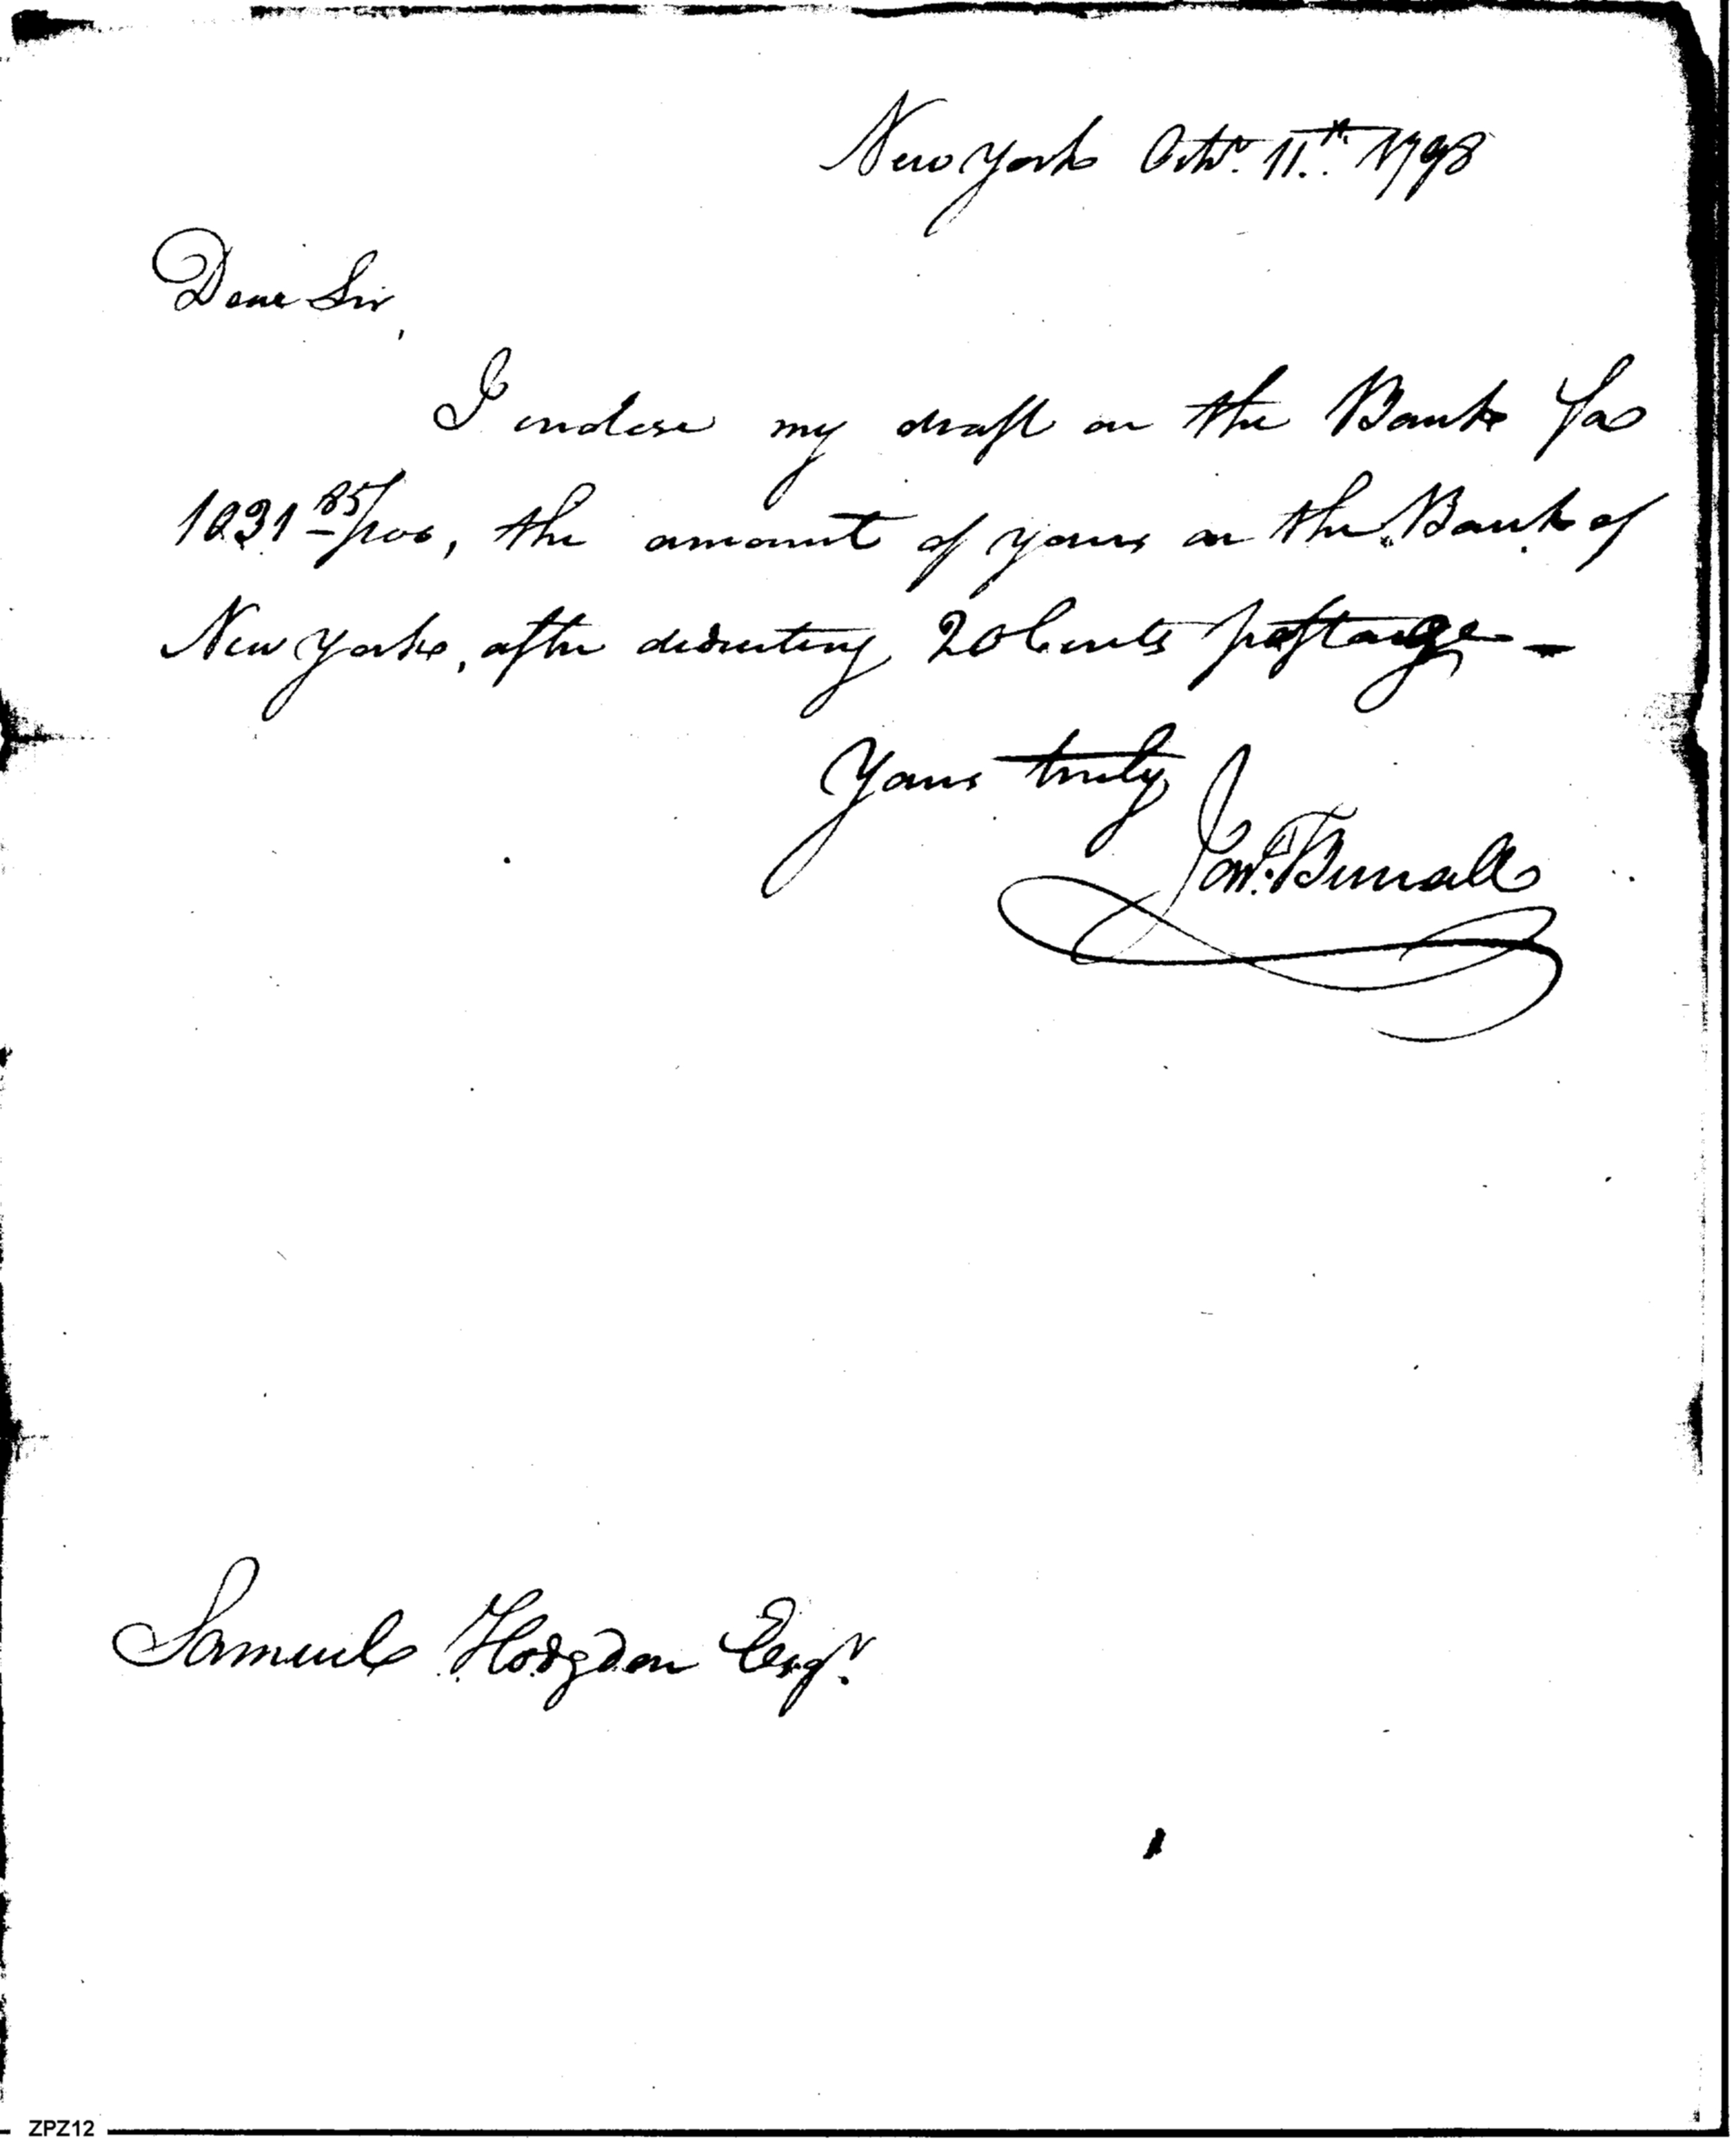 New York Octr. 11th. 1798
Dear Sir,
I enclose my draft on the Bank for
1031 85/100, the amount of yours on the Bank of
New York, after deducting 20 Cents postage —
Yours truly
Jon. Burrall
Samuel Hodgdon Esqr.
ZPZ12